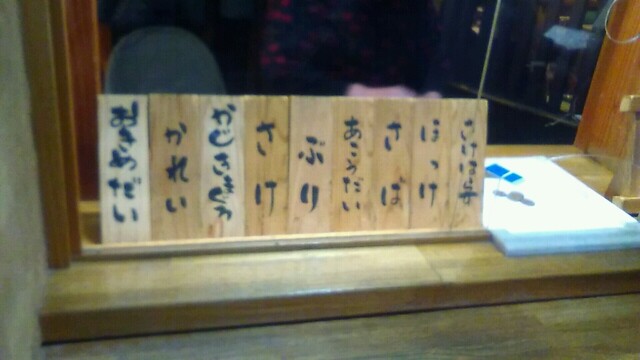 さけはらす
ほっけ
さば
あこうだい
ぶり
さけ
かじきまぐろ
かれい
おきめだい